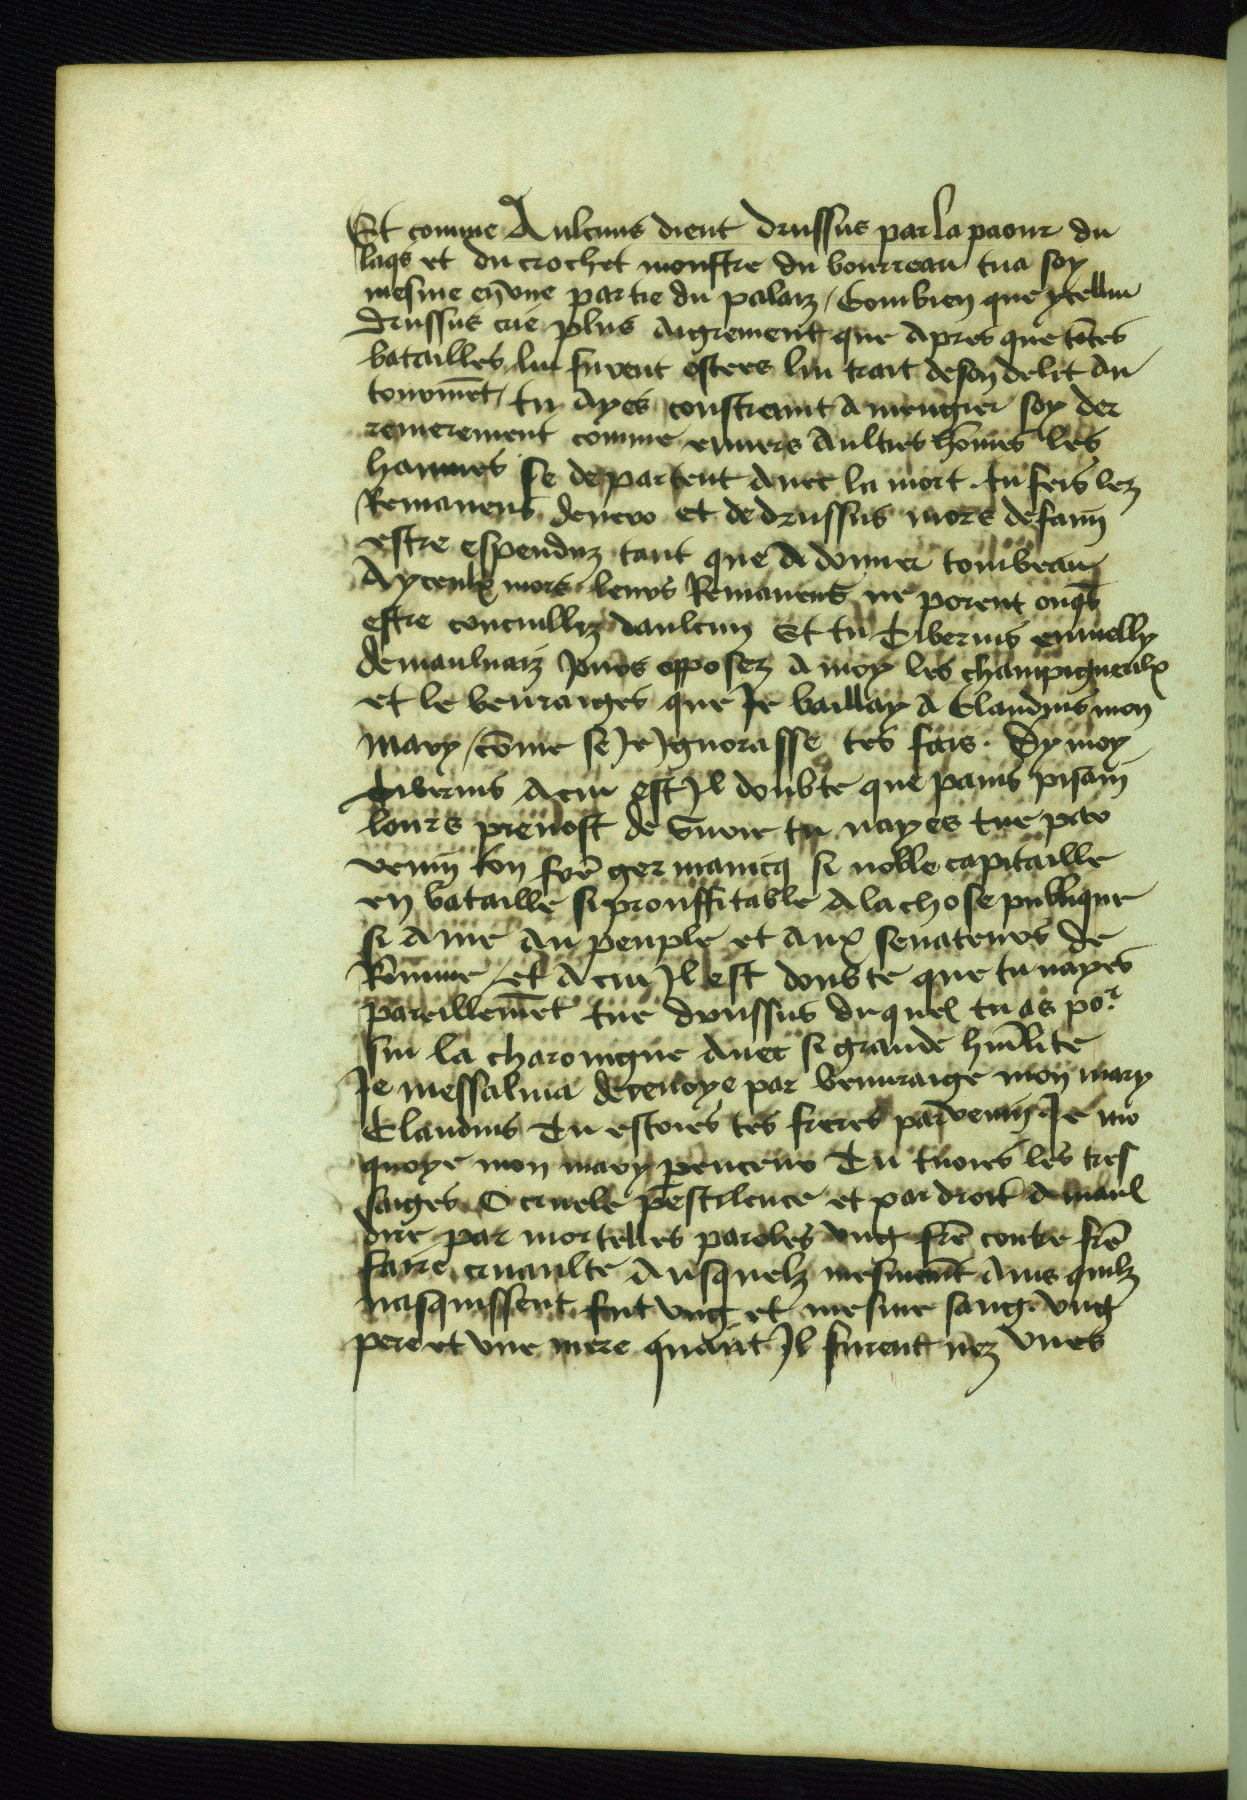 Et comme Aulcuns dient drussus par la paour du
laqs et du crochet monstre du bourreau tua soy
mesme en vne partie du palaiz / Combien que ycellui
drussus crie plus Aigrement que Apres que toẽs
batailles lui furent ostees lui trait de son delit Au
tourmẽt / tu Ayes constreaint A mengier soy der
renierement comme enuers Aultres hõmes les
haynnes se departent Auec la mort . tu feis lez
Remanens denero et de drussus mors de faim
estre espenduz tant que A donner tombeau
A yceulx mors leurs Remanens ne porent onq̃s
estre concuilliz daulcun Et tu Tiberius enuielly
de mauluaiz Jours opposez A moy les champigneulx
et le beuraiges que Je baillay A Claudius mon
mary / cõme se Je Jgnorasse tes fais . Dy moy
Tiberius A cui est Jl doubte que par pisain
lours preuost de Surie tu nayes tue par
venin ton frẽ germanicq si noble capitaille
en bataille si prouffitable A la chose publique
si Ame Au peuple et Aux senateurs de
Rõmme / et A cui Jl est doubte que tu nayes
pareillemẽt tue drussus duquel tu as por
sui la charoingne Auec si grande humilite
Je messalina decenoye par beuuraige mon mary
Claudius Tu estoies tes freres par venin . Je mo
quoye mon mary penceur Tu tuoies les tres
saiges O cruele pestilence et par droit A maul
dire par mortelles paroles vng frẽ contre frẽ
faire cruaulte Ausquelz mesmemẽt Ains quilz
nasquissent fut vng et mesme sang . vng
pere et vne mere quant Jl furent nez vnes